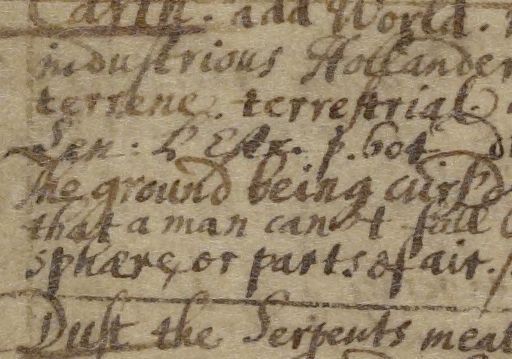 Earth. add World.
industrious Hollander
terrene. terrestrial
Sen: L'Estr. p. 604
the ground being curs'd
that a man cannot fall
sphære, or parts of air.
Dust the Serpents meat